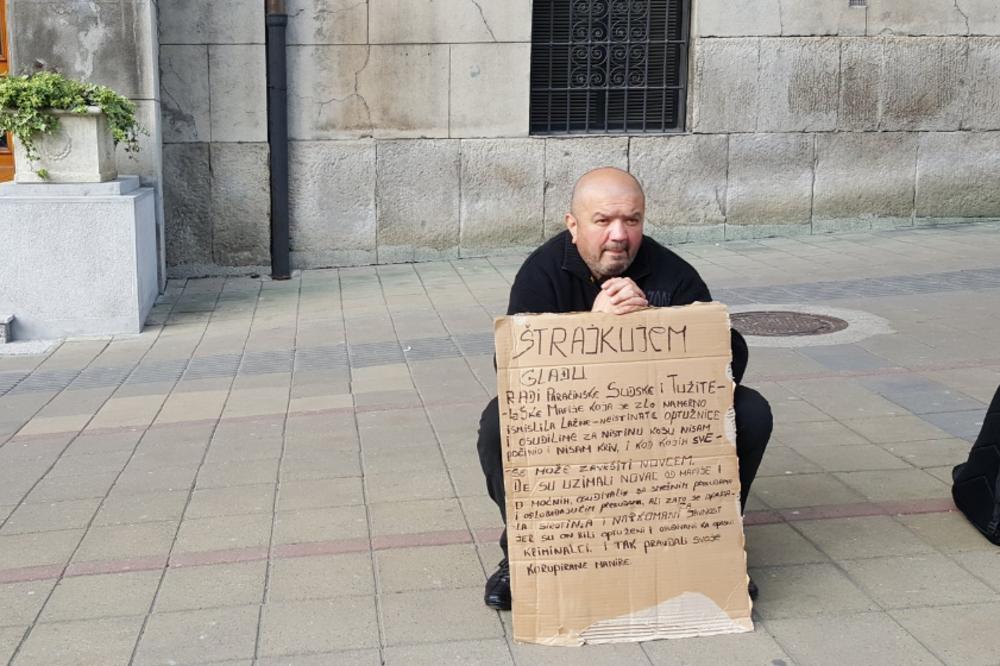 ŠTRAJKUJEM
GLAĐU
RADI PARAĆINSKE SUDSKE I TUŽITE-
-LAŠKE MAFIJE KOJA JE ZLO NAMERNO
ISMISLILA LAŽNE-NEISTINITE OPTUŽNICE
I OSUDILI ME ZA NISTINU KOJU NISAM
POČINIO I NISAM KRIV, I KOD KOJIH SVE-
SE MOŽE ZAVRŠITI NOVCEM.
DE SU UZIMALI NOVAC OD MAFIJE I
O MOĆNIH, OSUĐIVALI SMEŠNIM PRESUDAMA
I OSLOBAĐAJUĆIM PRESUDAMA, ALI ZATO SE
LA SIROTINJA I NARKOMANI ZA JAVNOST
JER SU ON BILI OPTUŽENI I OSUĐIVANI KA OPASNI
KRIMINALCI. I TAK PRAVDALI SVOJE
KORUPIRANE MANIRE.